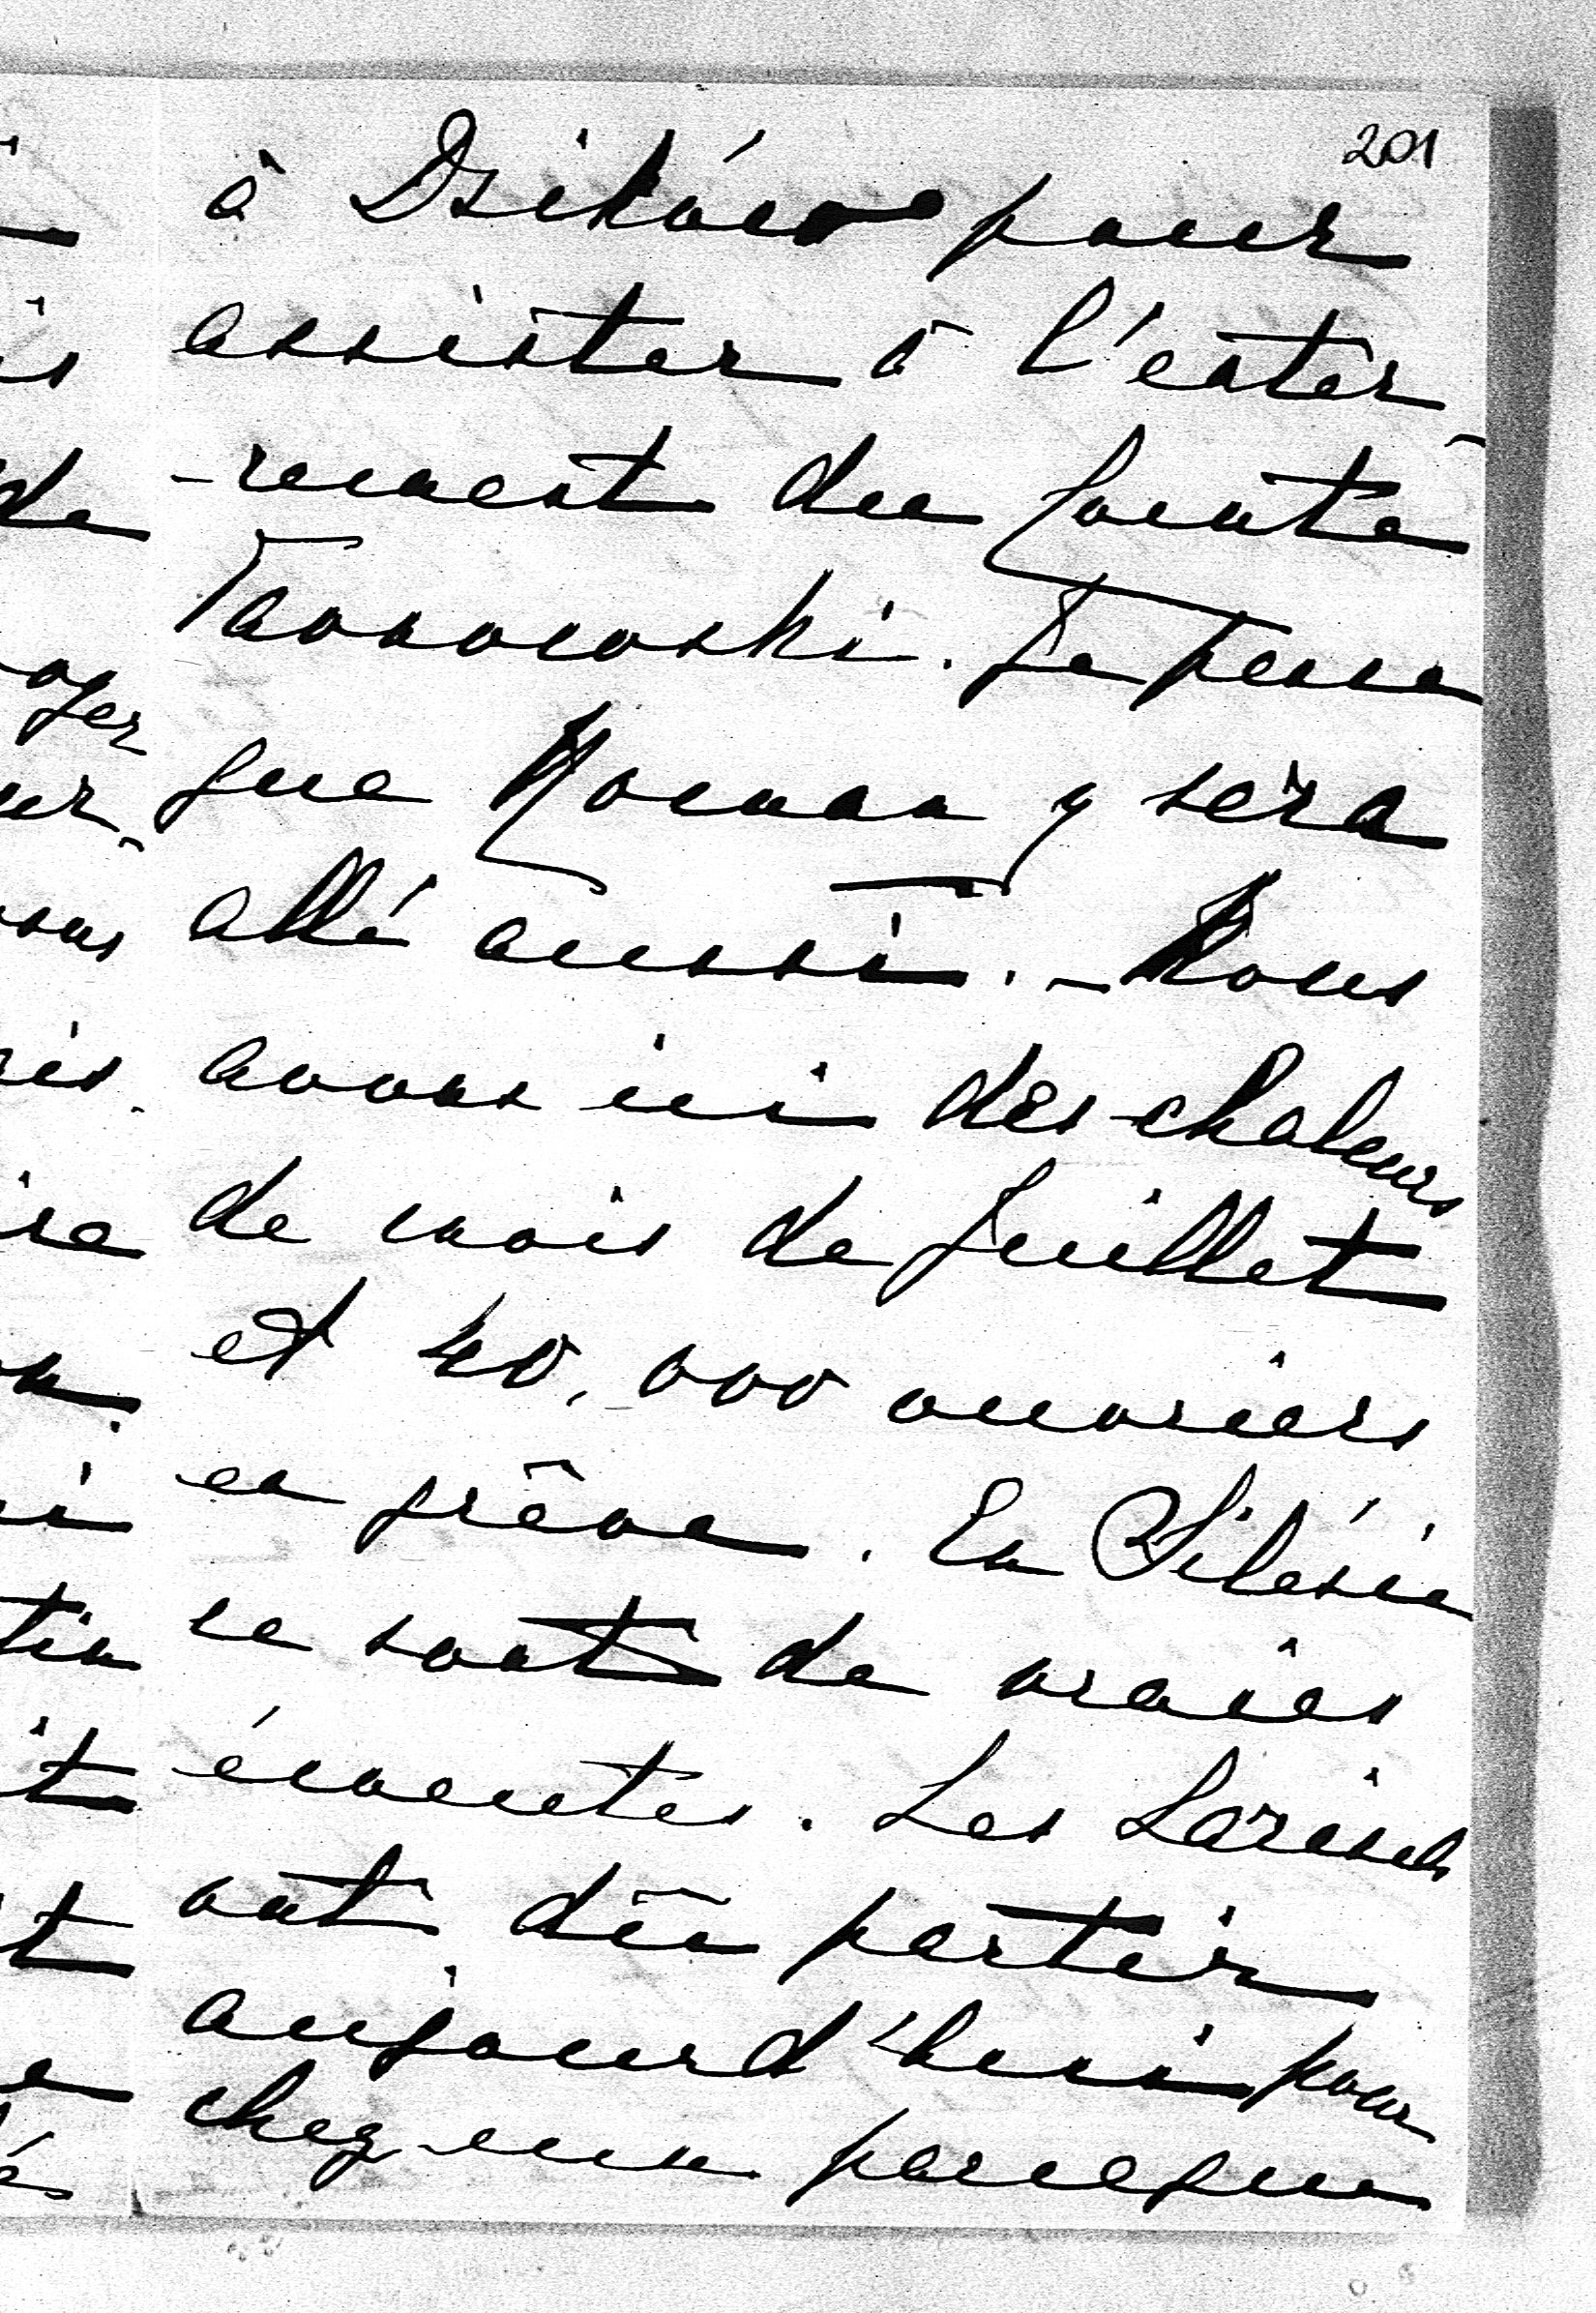 201
à Dzików pour
assister à l'enter-
-rement du Comte
Tarnowski. Je pense
que Roman y sera
allé aussi. - Nous
avons ici des chaleurs
de mois de Juillet
et 40.000 ouvriers
en grève. En Silésie
ce sont de vraies
émeutes. Les Larisch
ont dû partir
aujourd'hui pour
chez eux parceque
is
de
oger
ur-
ire
tin
it